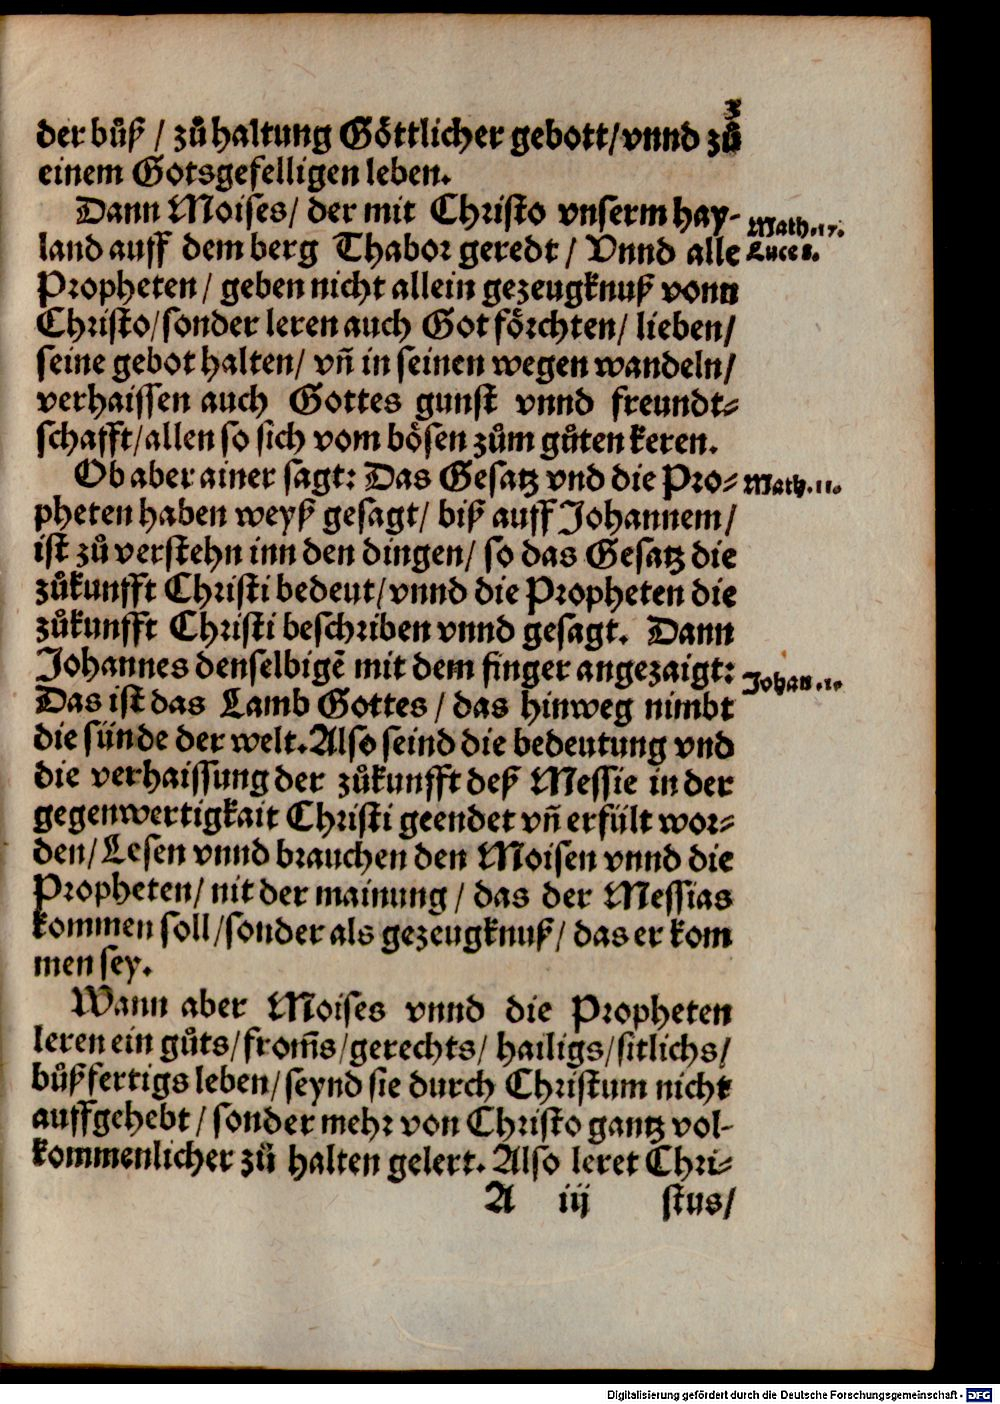 3
der bůß / zů haltung Göttlicher gebott/ vnnd zů
einem Gotsgefelligen leben.
Dann Moises/ der mit Christo vnserm hay-
Math. 17.
land auff dem berg Thabor geredt / Vnnd alle
Luce 8.
Propheten / geben nicht allein gezeugknuß vonn
Christo/ sonder leren auch Got förchten/ lieben/
seine gebot halten/ vñ in seinen wegen wandeln/
verhaissen auch Gottes gunst vnnd freundt⸗
schafft/ allen so sich vom bösen zům gůten keren.
Ob aber ainer sagt: Das Gesatz vnd die Pro⸗
Math. 11.
pheten haben weyß gesagt/ biß auff Johannem/
ist zů verstehn inn den dingen/ so das Gesatz die
zůkunfft Christi bedeut/ vnnd die Propheten die
zůkunfft Christi beschriben vnnd gesagt. Dann
Johannes denselbigē mit dem finger angezaigt:
Johan. 1.
Das ist das Lamb Gottes / das hinweg nimbt
die sünde der welt. Also seind die bedeutung vnd
die verhaissung der zůkunfft deß Messie in der
gegenwertigkait Christi geendet vñ erfült wor⸗
den/ Lesen vnnd brauchen den Moisen vnnd die
Propheten/ nit der mainung / das der Messias
kommen soll / sonder als gezeugknuß/ das er kom
men sey.
Wann aber Moises vnnd die Propheten
leren ein gůts/ from̃s/ gerechts/ hailigs/ sitlichs/
bůßfertigs leben/ seynd sie durch Christum nicht
auffgehebt / sonder mehr von Christo gantz vol-
kommenlicher zů halten gelert. Also leret Chri⸗
A iij stus/
Digitalisierung gefördert durch die Deutsche Forschungsgemeinschaft - DFG